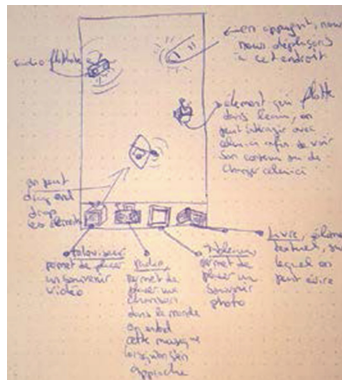 en appuyant, nous
nous déplaçons
à cet endroit
radio flottante
élément qui flotte
dans l'eau, on
peut intéragir avec
celui-ci afin de voir
son contenu ou de
changer celui-ci
on peut
drag and
drop
les éléments
téléviseur
permet de placer
un souvenir
vidéo
Radio,
permet de
placer une
chanson
dans le monde
on entend
cette musique
lorsqu'on s'en
approche
permet de
placer un
souvenir
photo
Livre, élément
textuel, sur
lequel on
peut écrire